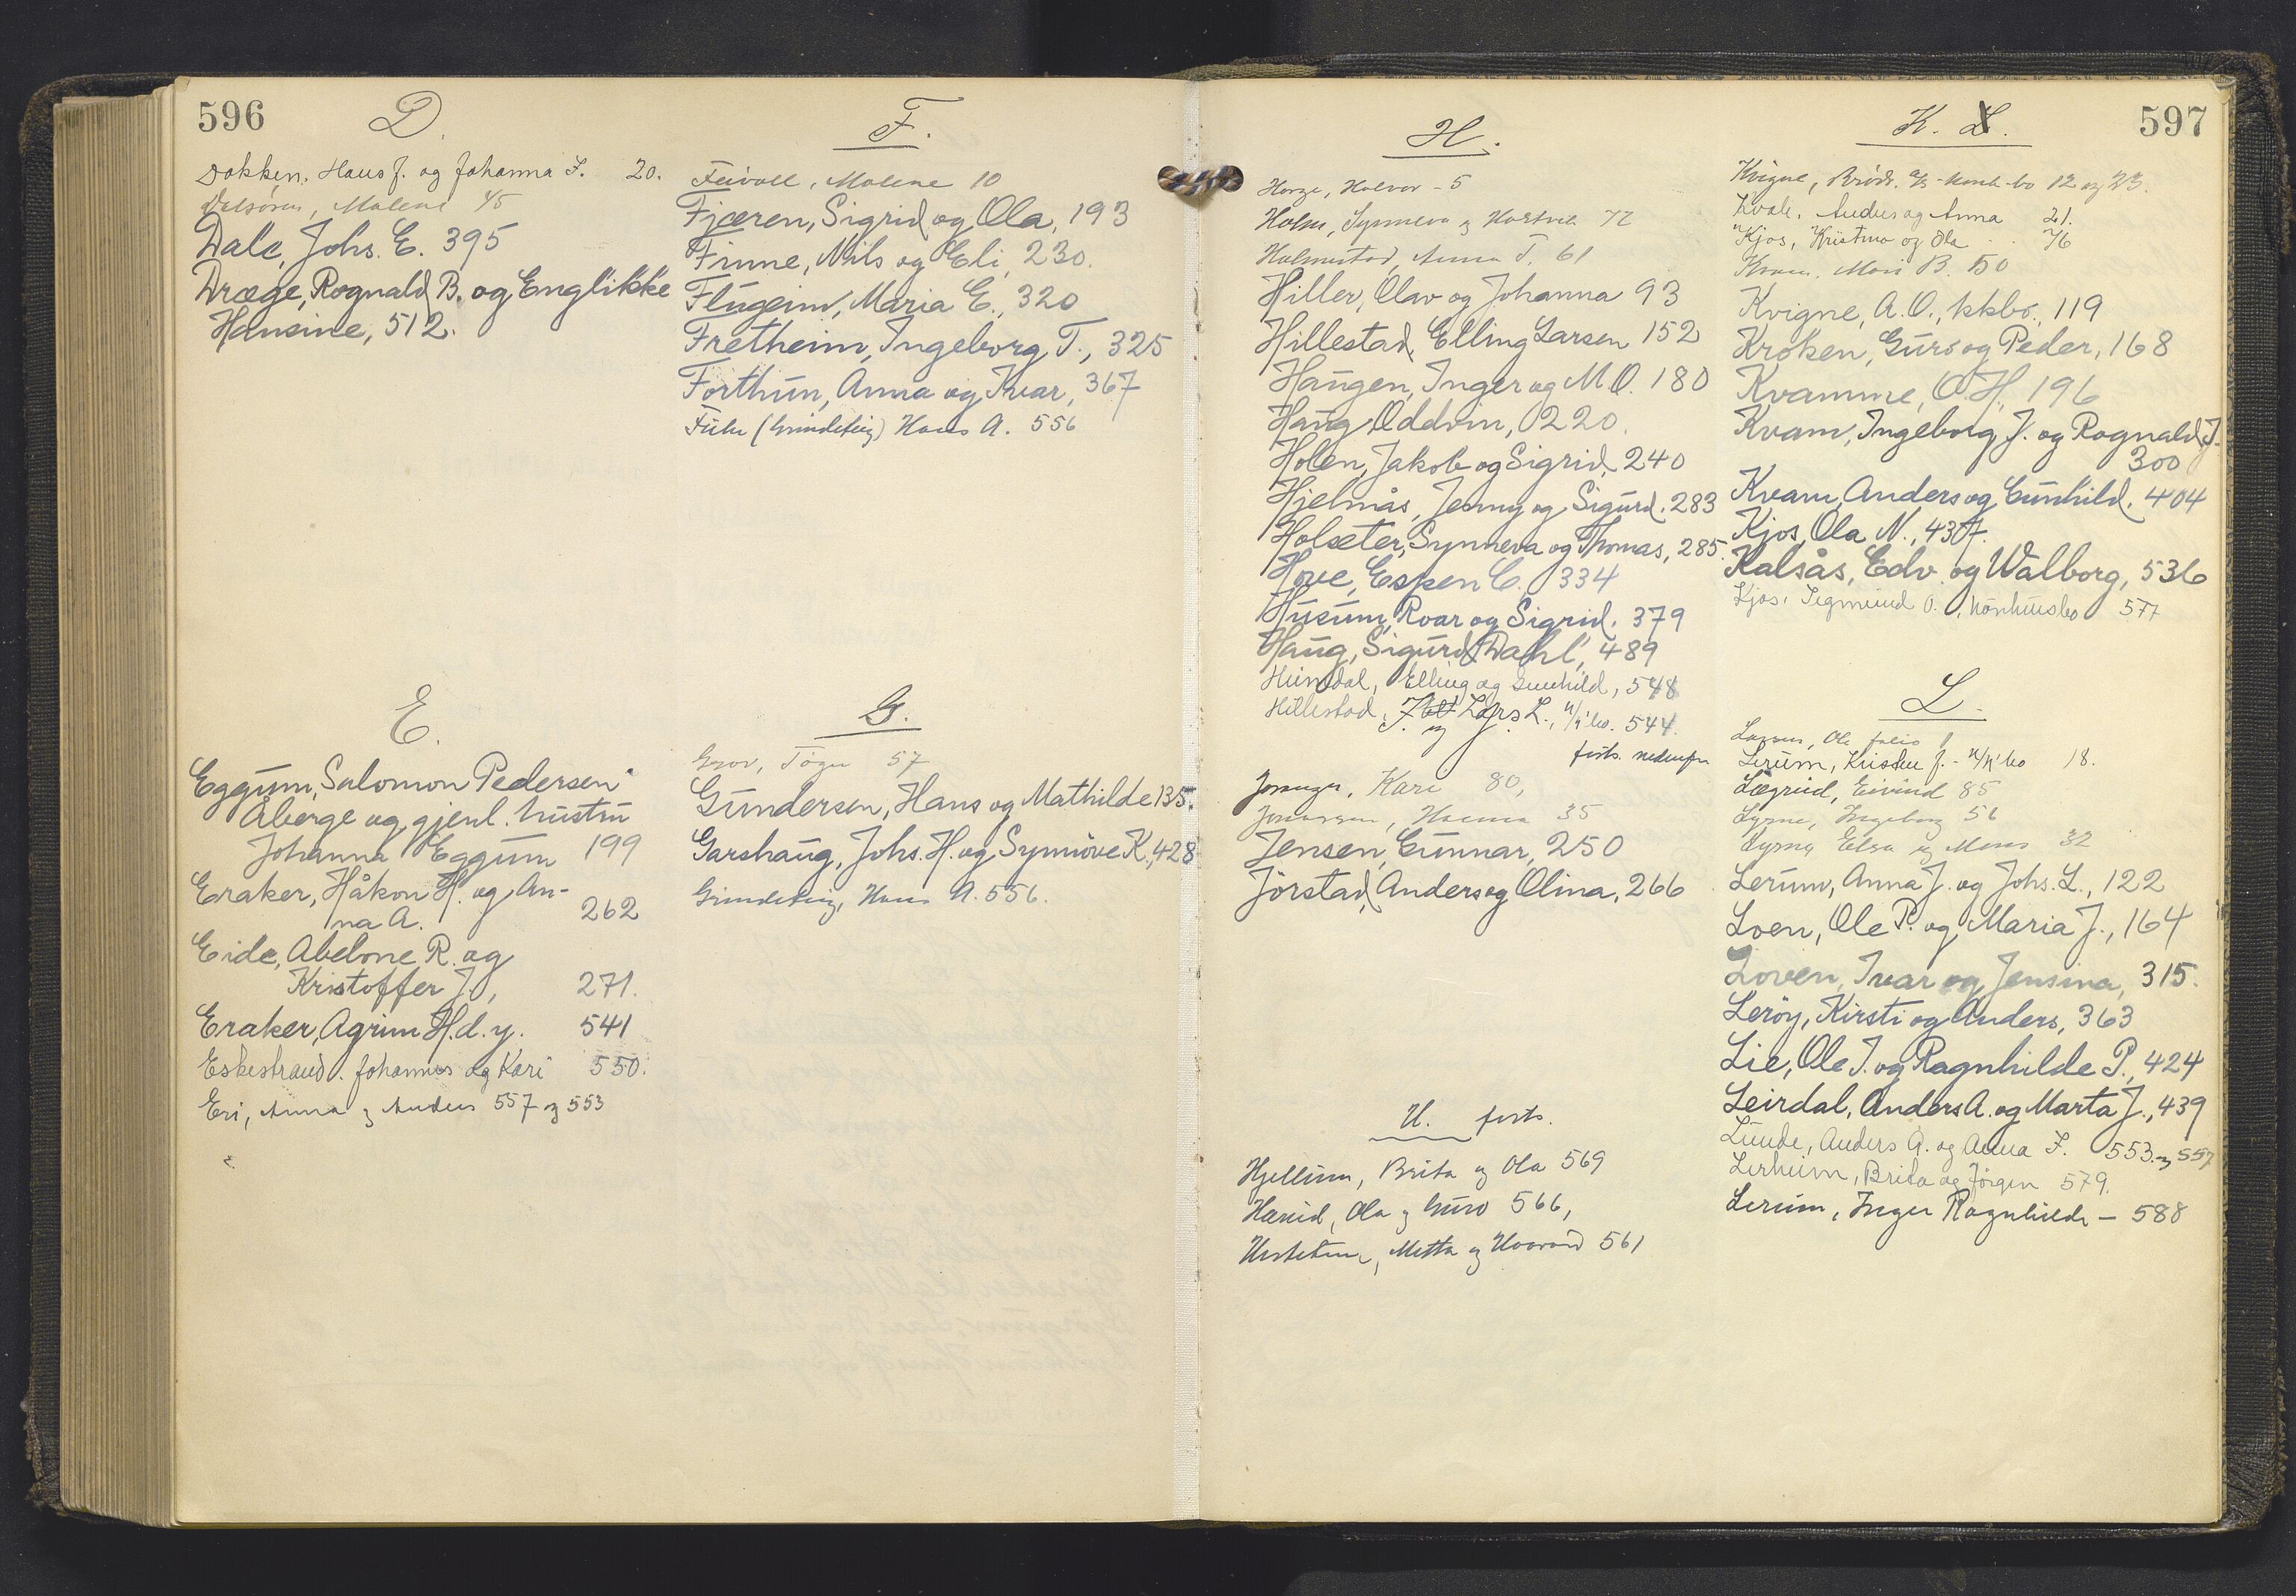 596
D.
Dokken, Hans J. og Johanna F. 20.
Dalsøren, Malene 45
Dale, Johs. E. 395
Dræge, Rognald B. og Englikke
Hansine, 512.
E.
Eggum, Salomon Pedersen
Åberge og gjenl. hustru
Johanna Eggum 199
Eraker, Håkon H. og An-
na A. 262
Eide, Abelone R. og
Kristoffer J., 271.
Eraker, Agrim H. d. y. 541
Eskestrand, Johannes og Kari 550.
Eri, Anna og Anders 557 og 553
F.
Malene 10
Fjæren, Sigrid og Ola, 193
Finne, Nils og Eli, 230.
Flugeim, Maria E., 320
Fretheim, Ingeborg T., 325
Forthun, Anna og Ivar, 367
(Grindeteig) Hans A. 556
G.
Grov, 57
Gundersen, Hans og Mathilde 135.
Garshaug, Johs. H. og Synnöve K., 428
Grindeteig, Hans A. 556.
597
H.
Halvor - 5
Holm, Synneva og 72
Holmestad, Anna T. 61
Hiller, Olav og Johanna 93
Hillestad, Elling Larsen 152
Haugen, Inger og M.O. 180
Haug Oddvin, 220.
Holen, Jakob og Sigrid, 240
Hjelmås, Jenny og Sigurd. 283
Holseter, Synneva og Thomas, 285.
Hove, Espen C. 334
Husum, Roar og Sigrid. 379
Haug, Sigurd Dahl, 489
Elling og Gunhild, 548
Hillestad, Lars L., 544.
J. forts. nedenfor
Kari 80,
Hanna 35
Jensen, Gunnar, 250
Jörstad, Anders og Olina, 266
H. forts.
Hjellum, Brita og Ola 569
Ola og Guro 566,
Metta og Haavard 561
K. L.
Kvigne, Brödr. 12 og 23.
Kvale, Anders og Anna 21.
Kjos, Kristina og Ola 76
Kvam, Mari B. 50
Kvigne, A.O., kkbo., 119
Kroken, Guro og Peder, 168
Kvamme, O.H., 196
Kvam, Ingeborg J. og Rognald J.
300
Kvam, Anders og Gunhild. 404
Kjos, Ola N., 437.
Kalsås, Edv. og Walborg, 536
Kjos, Sigmund O. 577
L.
Larsen, Ole folio 1
Lerum, Kristen J. - 18.
Lægreid, Eivind 85
Lyrne, Ingeborg 56
Lyrne, Elsa og Mons 32
Lerum, Anna J. og Johs. L., 122
Loen, Ole P. og Maria J., 164
Loven, Ivar og Jensina, 315.
Leröy, Kirsti og Anders, 363
Lie, Ole J. og Ragnhilde P., 424
Leirdal, Anders A. og Marta J., 439
Lunde, Anders A. og Anna F. 553 og 557
Lerheim, Brita og Jörgen 579.
Lerum, Inger Ragnhilde - 588